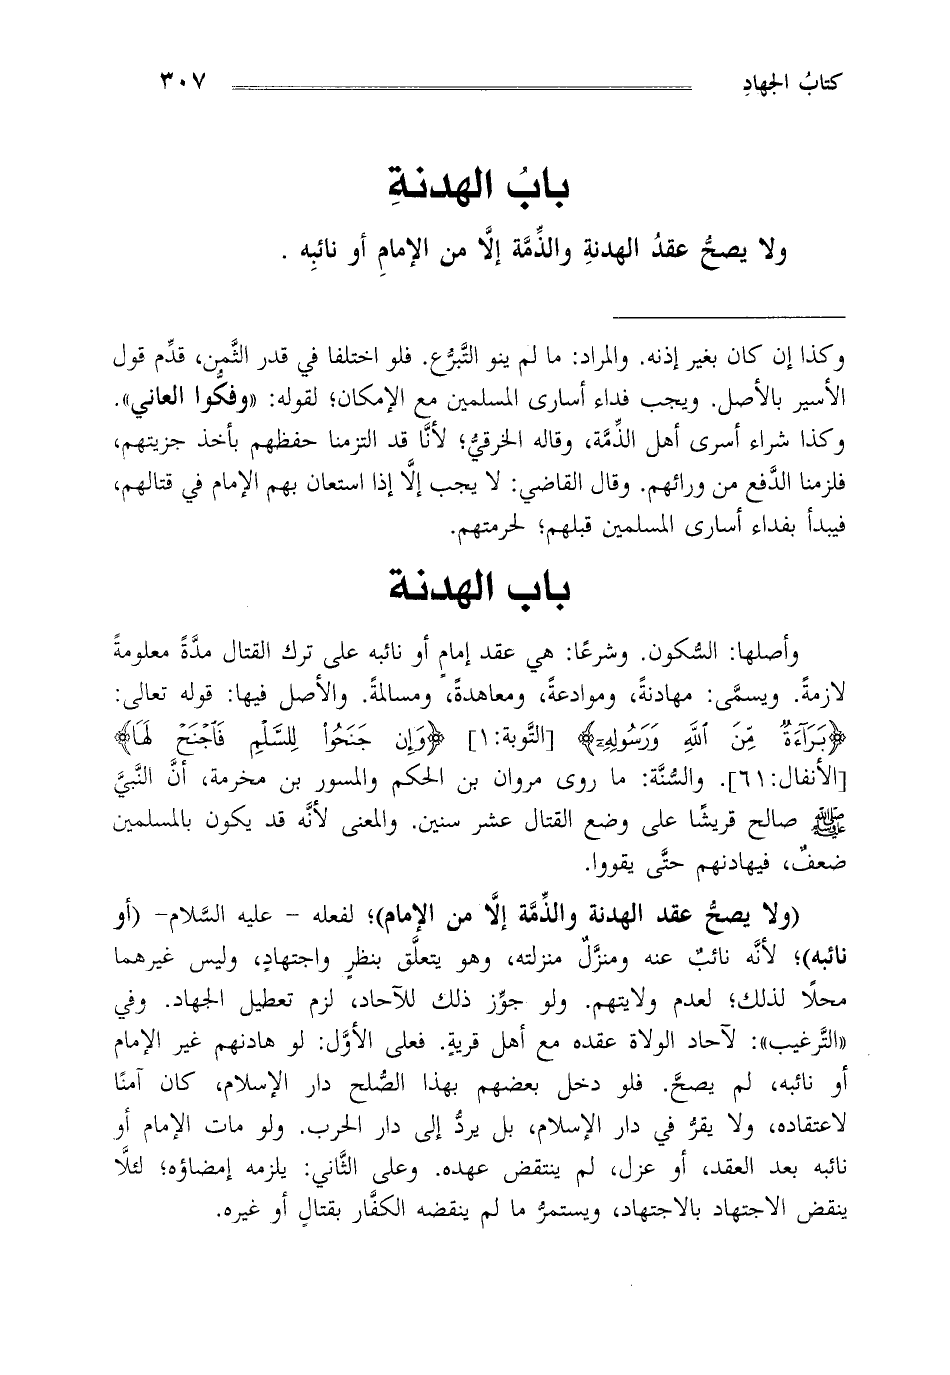 كتابُ الجهادِ ٣٠٧
بابُ الهدنةِ
ولا يصحُّ عقدُ الهدنةِ والذِّمَّة إلَّا من الإمامِ أو نائبِه .
وكذا إن كان بغير إذنه. والمراد: ما لم ينو التَّبرُّع. فلو اختلفا في قدر الثَّمن، قدِّم قول
الأسير بالأصل. ويجب فداء أسارى المسلمين مع الإمكان؛ لقوله: «وفكُّوا العاني».
وكذا شراء أسرى أهل الذِّمَّة، وقاله الخرقيُّ؛ لأنَّا قد التزمنا حفظهم بأخذ جزيتهم،
فلزمنا الدَّفع من ورائهم. وقال القاضي: لا يجب إلَّا إذا استعان بهم الإمام في قتالهم،
فيبدأ بفداء أسارى المسلمين قبلهم؛ لحرمتهم.
باب الهدنة
وأصلها: السُّكون. وشرعًا: هي عقد إمامٍ أو نائبه على ترك القتال مدَّةً معلومةً
لازمةً. ويسمَّى: مهادنةً، وموادعةً، ومعاهدةً، ومسالمةً. والأصل فيها: قوله تعالى:
﴿بَرَآءَةٌ مِّنَ ٱللَّهِ وَرَسُولِهِۦٓ﴾ [التَّوبة:١] ﴿وَإِن جَنَحُوا۟ لِلسَّلْمِ فَٱجْنَحْ لَهَا﴾
[الأنفال:٦١]. والسُّنَّة: ما روى مروان بن الحكم والمسور بن مخرمة، أنَّ النَّبيَّ
ﷺ صالح قريشًا على وضع القتال عشر سنين. والمعنى لأنَّه قد يكون بالمسلمين
ضعفٌ، فيهادنهم حتَّى يقووا.
(ولا يصحُّ عقد الهدنة والذِّمَّة إلَّا من الإمام)؛ لفعله - عليه السَّلام- (أو
نائبه)؛ لأنَّه نائبٌ عنه ومنزَّلٌ منزلته، وهو يتعلَّق بنظرٍ واجتهادٍ، وليس غيرهما
محلًا لذلك؛ لعدم ولايتهم. ولو جوِّز ذلك للآحاد، لزم تعطيل الجهاد. وفي
«التَّرغيب»: لآحاد الولاة عقده مع أهل قريةٍ. فعلى الأوَّل: لو هادنهم غير الإمام
أو نائبه، لم يصحَّ. فلو دخل بعضهم بهذا الصُّلح دار الإسلام، كان آمنًا
لاعتقاده، ولا يقرُّ في دار الإسلام، بل يردُّ إلى دار الحرب. ولو مات الإمام أو
نائبه بعد العقد، أو عزل، لم ينتقض عهده. وعلى الثَّاني: يلزمه إمضاؤه؛ لئلَّا
ينقض الاجتهاد بالاجتهاد، ويستمرُّ ما لم ينقضه الكفَّار بقتالٍ أو غيره.